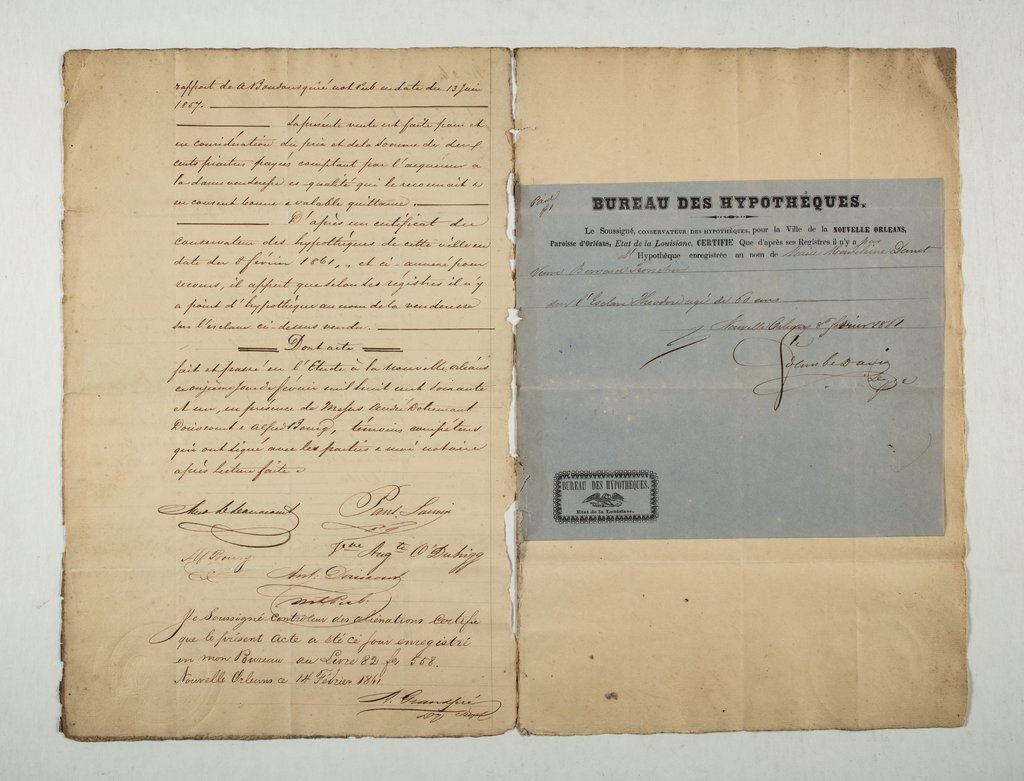 rapport de A Boudousquié not Pub. en date du 13 Juin
1857.
La présente vente est faite pour et
en considération du prix et de la somme de deux
cents piastres payés comptant par l'acquéreur a
la dame venderesse es-qualité qui le reconnait &
en consent bonne & valable quittance.
D'après un certificat du
conservateur des hypothèques de cette ville en
date du 8 février 1861, et ci-annexé pour
recours, il appert que selon les régistres il n'y
a point d'hypothèque au nom de la venderesse
sur l'esclave ci-dessus vendu.
Dont acte
fait et passé en l'Etude à la nouvelle orléans
ce onzième jour de février mil huit cent soixante
et un, en présence de Messrs André
Doriocourt & Alfred Bourg, témoins compétens
qui ont signé avec les parties & moi notaire
après lecture faite &
Paul
Bourg
Augte O'Duhigg
Ant. Doriocourt
not. Pub.
Je Soussigné Contrôleur des aliénations Certifie
que le présent Acte a été ce jour enregistré
en mon Bureau au Livre 82 fo 558.
Nouvelle Orleans ce 14 Février 1861.
A. Grandpré
BUREAU DES HYPOTHÉQUES.
Le Soussigné, CONSERVATEUR DES HYPOTHÉQUES, pour la Ville de la NOUVELLE ORLEANS,
Paroisse d'Orléans, Etat de la Louisiane, CERTIFIE Que d'après ses Registres il n'y a pas
d'Hypothéque enregistrée au nom de Marie Madeleine
Veuve Bernard
sur l'Esclave Théodore agé de 60 ans
Nouvelle Orléans 8 février 1861
BUREAU DES HYPOTHEQUES.
Etat de la Louisiane.